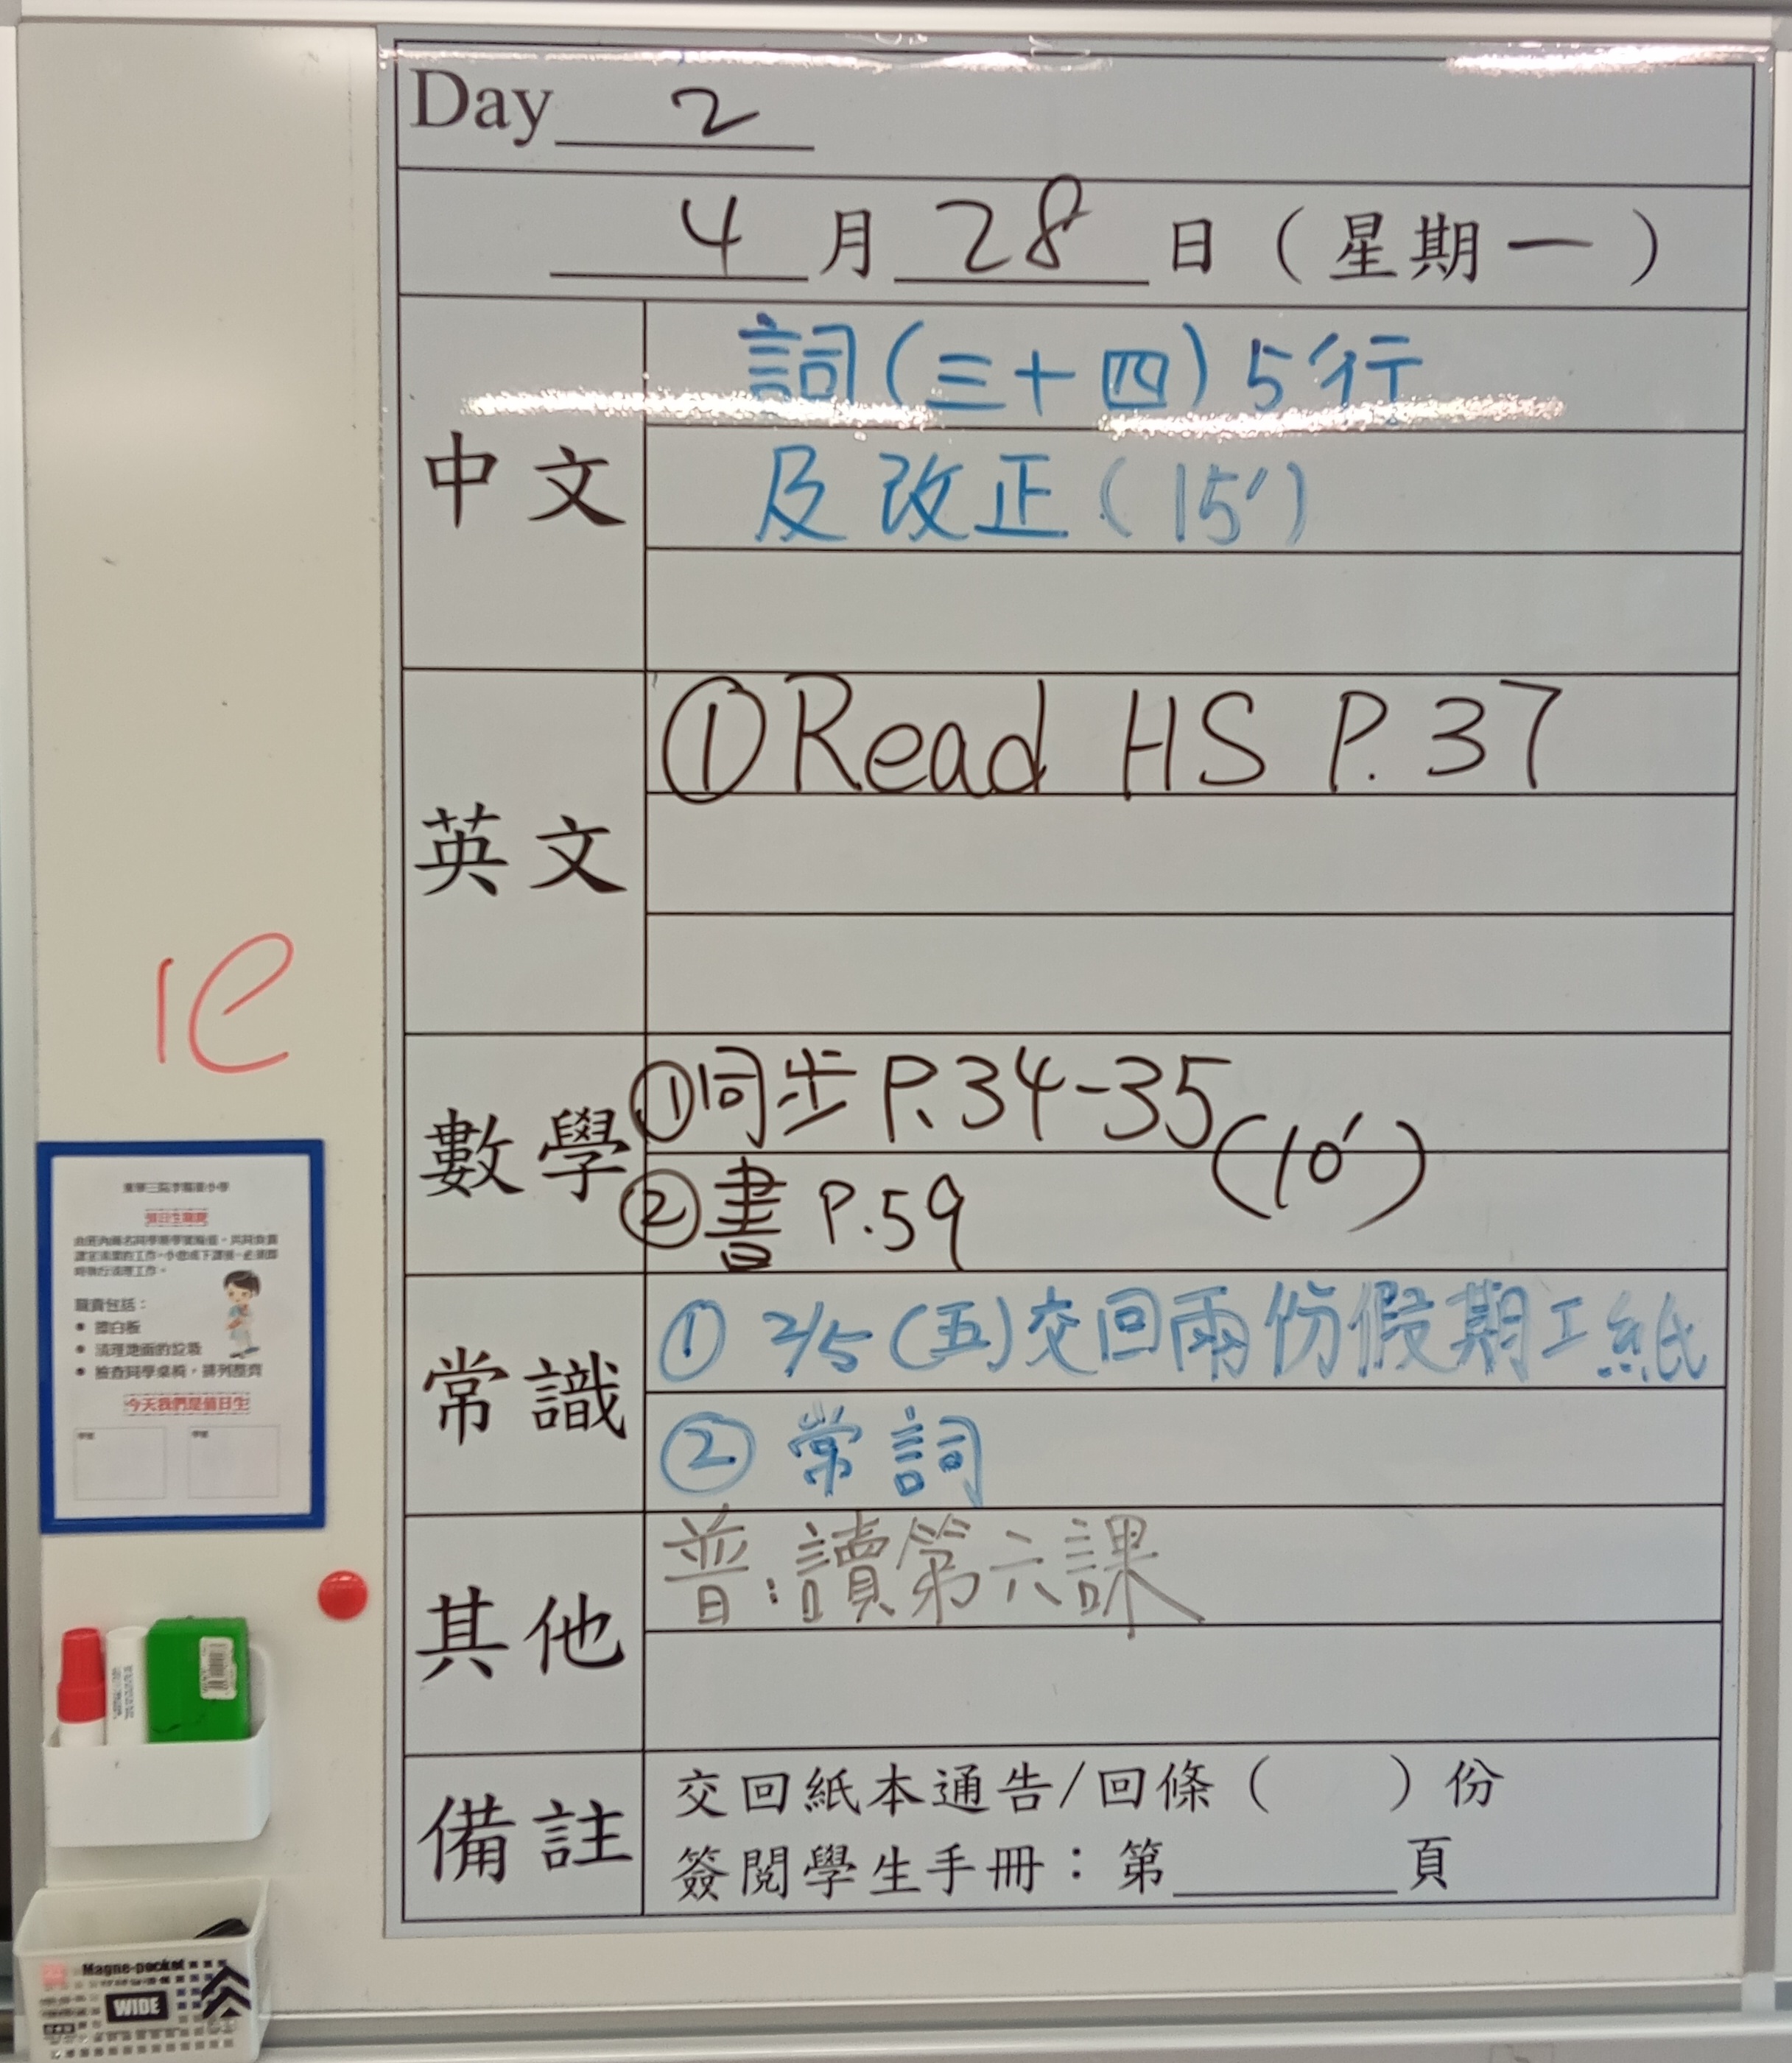 Day 2
4月28日（星期一）
中文
詞(三十四)5行
及改正(15')
英文
①Read HS P.37
數學
①同步P.34-35
(10')
②書 P.59
常識
① 2/5(五)交回兩份假期工紙
② 常詞
其他
普:讀第六課
備註
交回紙本通告/回條（　　）份
簽閱學生手冊：第______頁
1e
值日生職責
職責包括：
擦白板
清理地面的垃圾
檢查同學桌椅，排列整齊
今天我們是值日生
Magne-pocket
WIDE